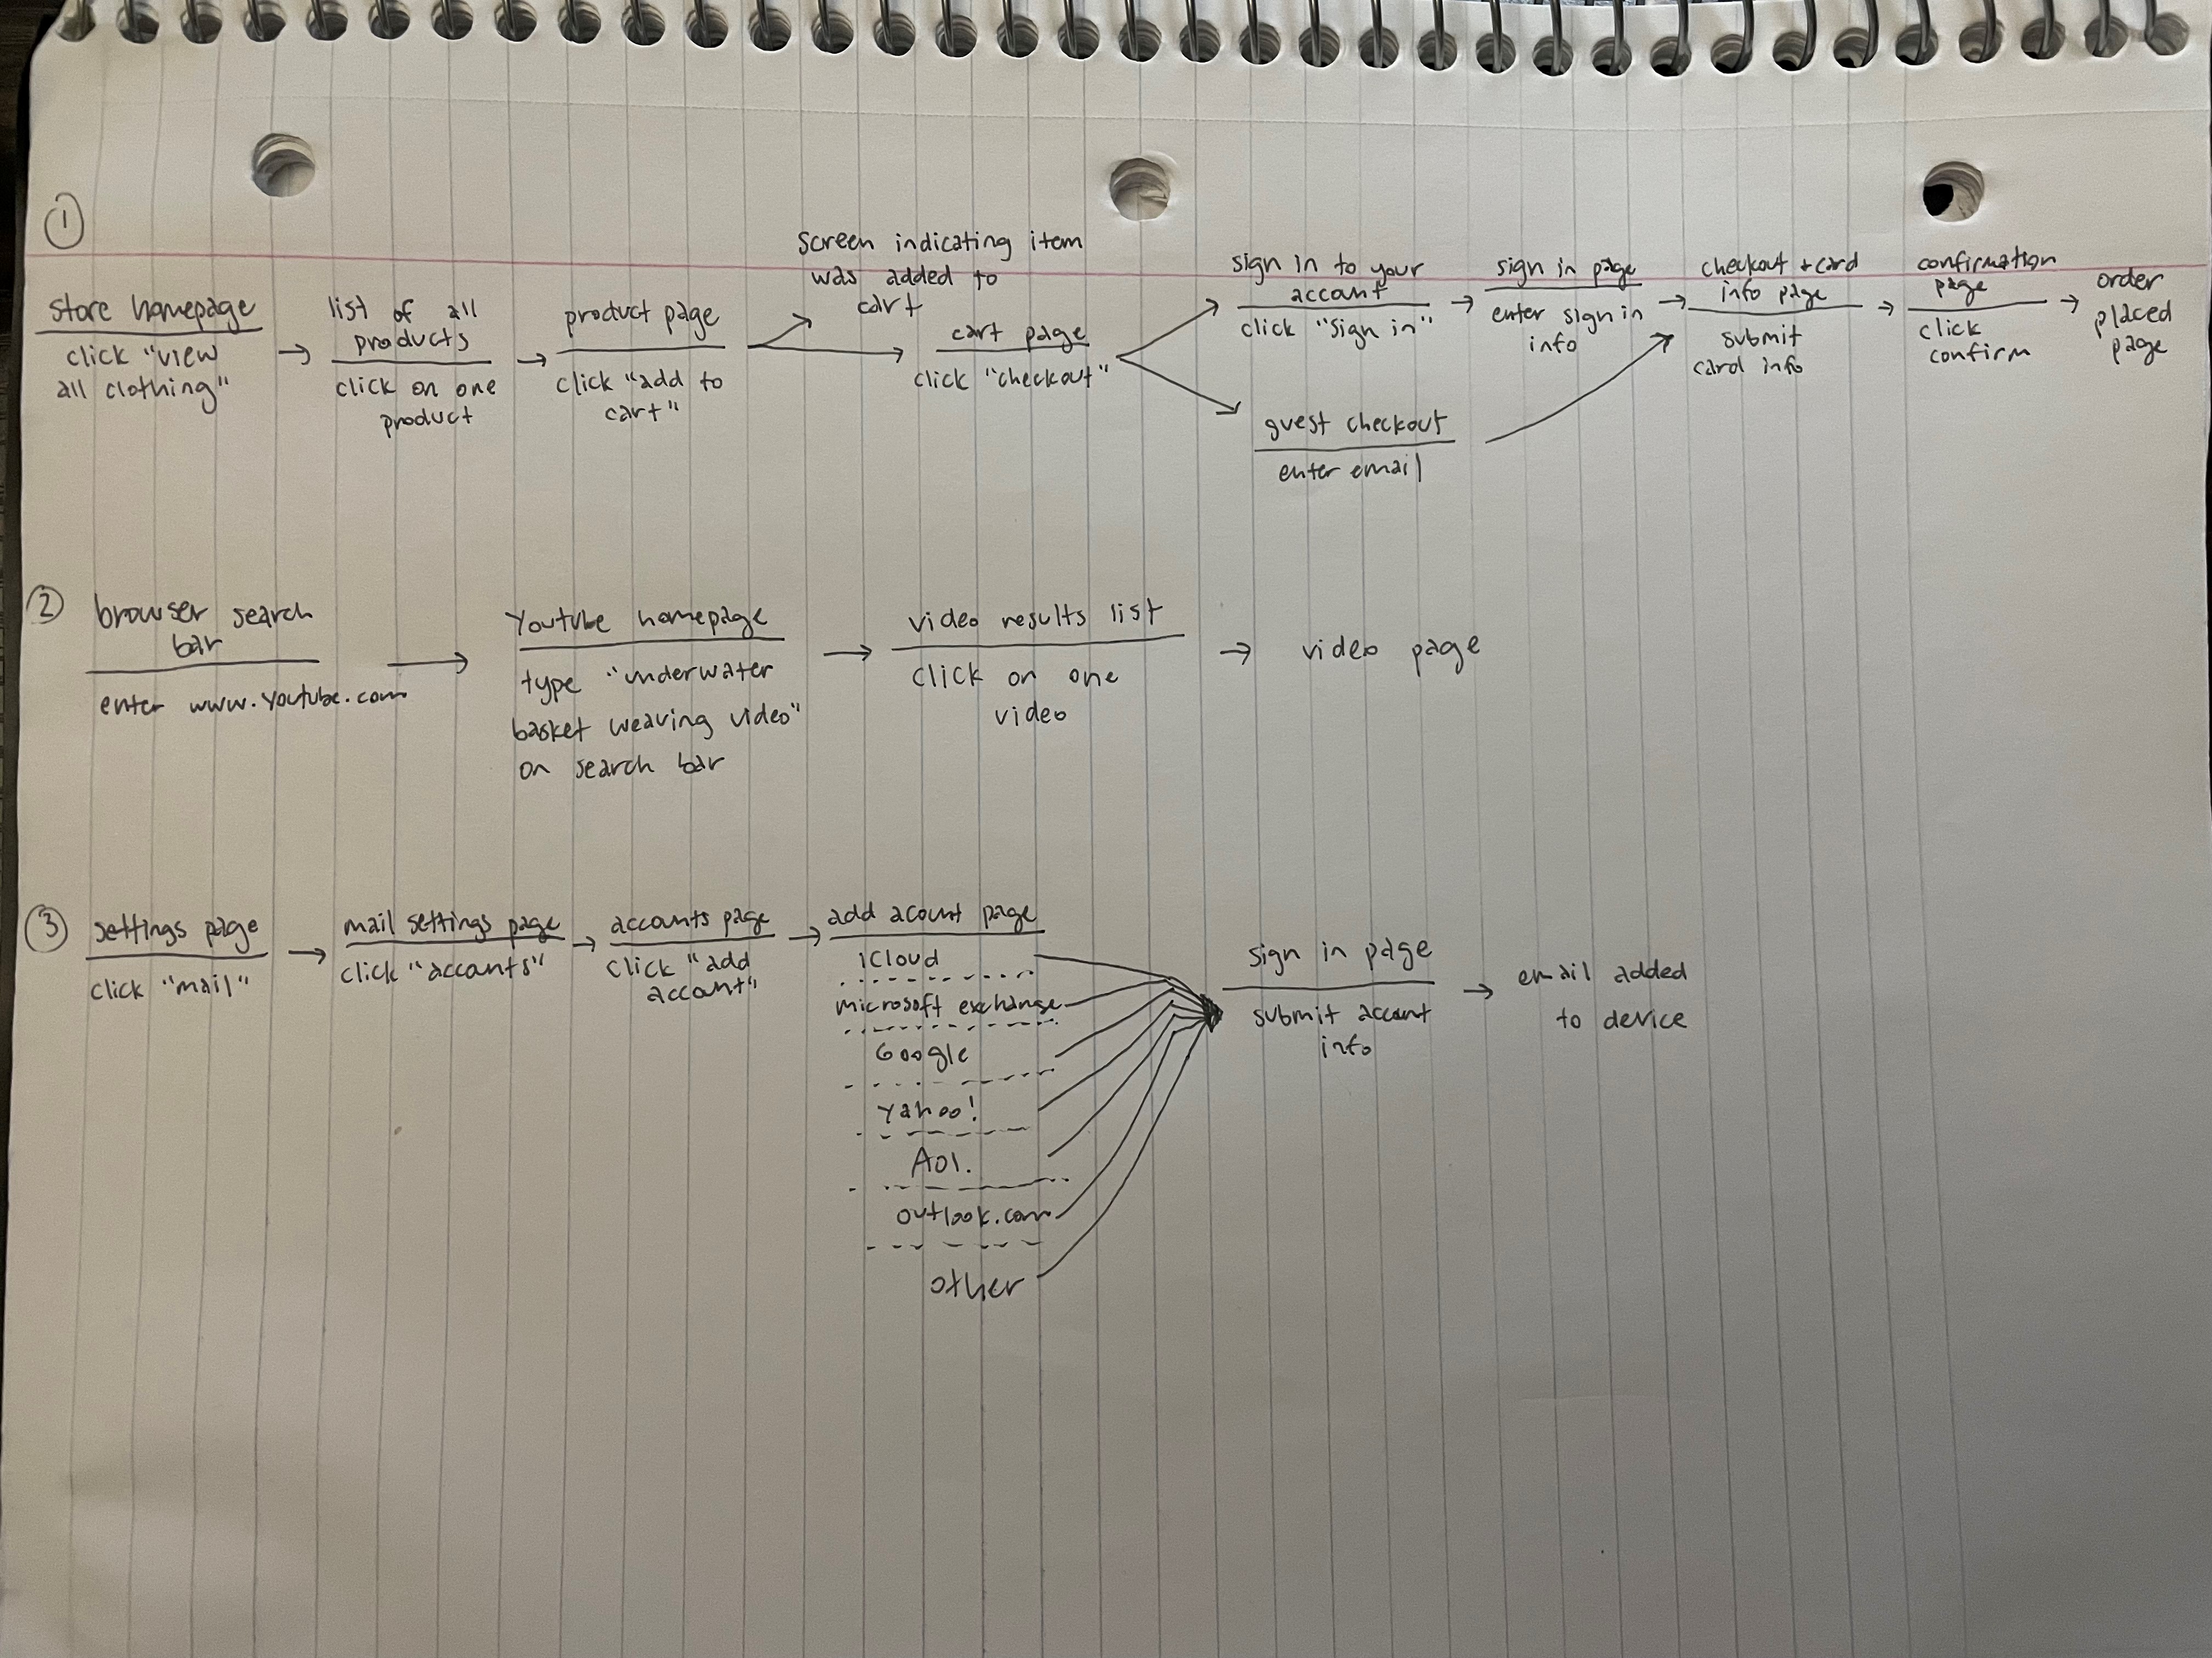 1
store homepage
click "view
all clothing"
list of all
products
click on one
product
product page
click "add to
cart"
screen indicating item
was added to
cart
cart page
click "checkout"
sign in to your
account
click "sign in"
sign in page
enter sign in
info
guest checkout
enter email
checkout + card
info page
submit
card info
confirmation
page
click
confirm
order
placed
page
2
browser search
bar
enter www.youtube.com
Youtube homepage
type "underwater
basket weaving video"
on search bar
video results list
click on one
video
video page
3
settings page
click "mail"
mail settings page
click "accounts"
accounts page
click "add
account"
add acount page
iCloud
microsoft exchange
Google
yahoo!
Aol.
outlook.com
other
sign in page
submit account
info
email added
to device